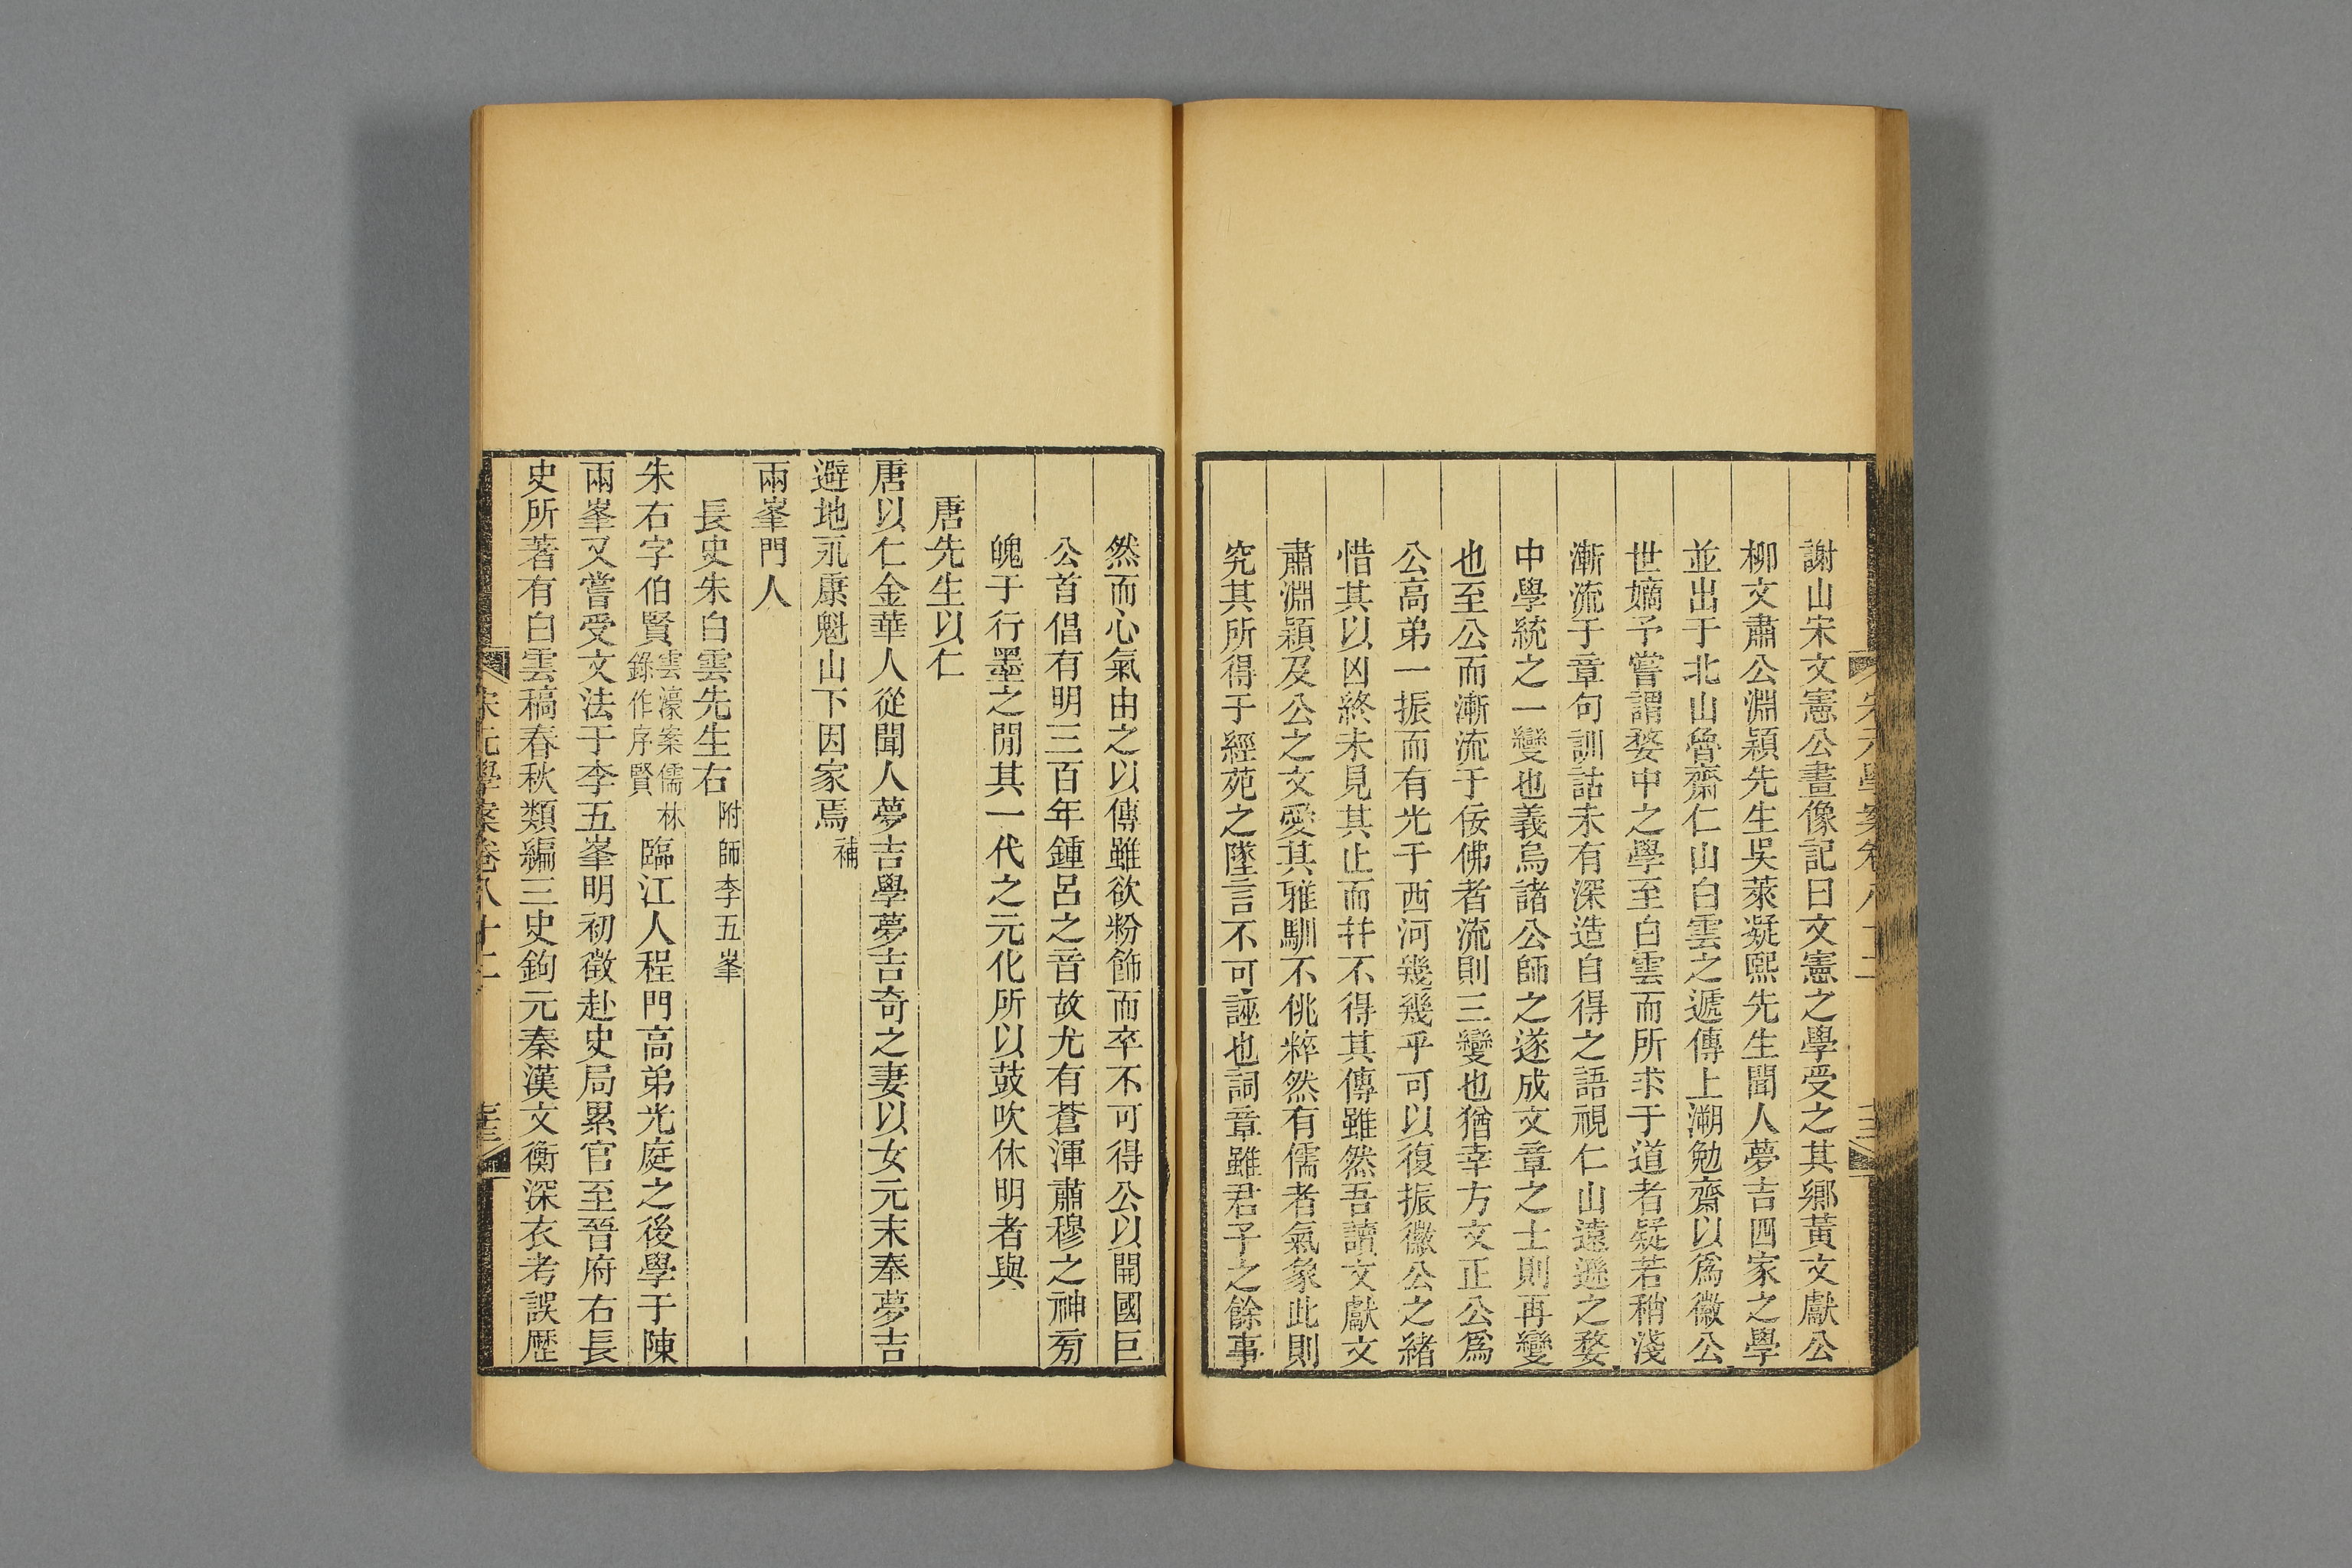 謝山宋文憲公畫像記曰文憲之學受之其鄉黃文獻公
柳文肅公淵穎先生吳萊凝熙先生聞人夢吉四家之學
並出于北山魯齋仁山白雲之遞傳上溯勉齋以爲徽公
世嫡予嘗謂婺中之學至白雲而所求于道者疑若稍淺
漸流于章句訓詁未有深造自得之語視仁山遠遜之婺
中學統之一變也義烏諸公師之遂成文章之士則再變
也至公而漸流于佞佛者流則三變也猶幸方文正公爲
公高弟一振而有光于西河幾幾乎可以復振徽公之緒
惜其以凶終未見其止而幷不得其傳雖然吾讀文獻文
肅淵穎及公之文愛其雅馴不佻粹然有儒者氣象此則
究其所得于經苑之墜言不可誣也詞章雖君子之餘事
然而心氣由之以傳雖欲粉飾而卒不可得公以開國巨
公首倡有明三百年鍾呂之音故尤有蒼渾肅穆之神旁
魄于行墨之閒其一代之元化所以鼓吹休明者與
唐先生以仁
唐以仁金華人從聞人夢吉學夢吉奇之妻以女元末奉夢吉
避地永康魁山下因家焉補
兩峯門人
長史朱白雲先生右附師李五峯
朱右字伯賢雲濠案儒林錄作序賢臨江人程門高弟光庭之後學于陳
兩峯又嘗受文法于李五峯明初徵赴史局累官至晉府右長
史所著有白雲稿春秋類編三史鉤元秦漢文衡深衣考誤歷
宋元學案卷八十二